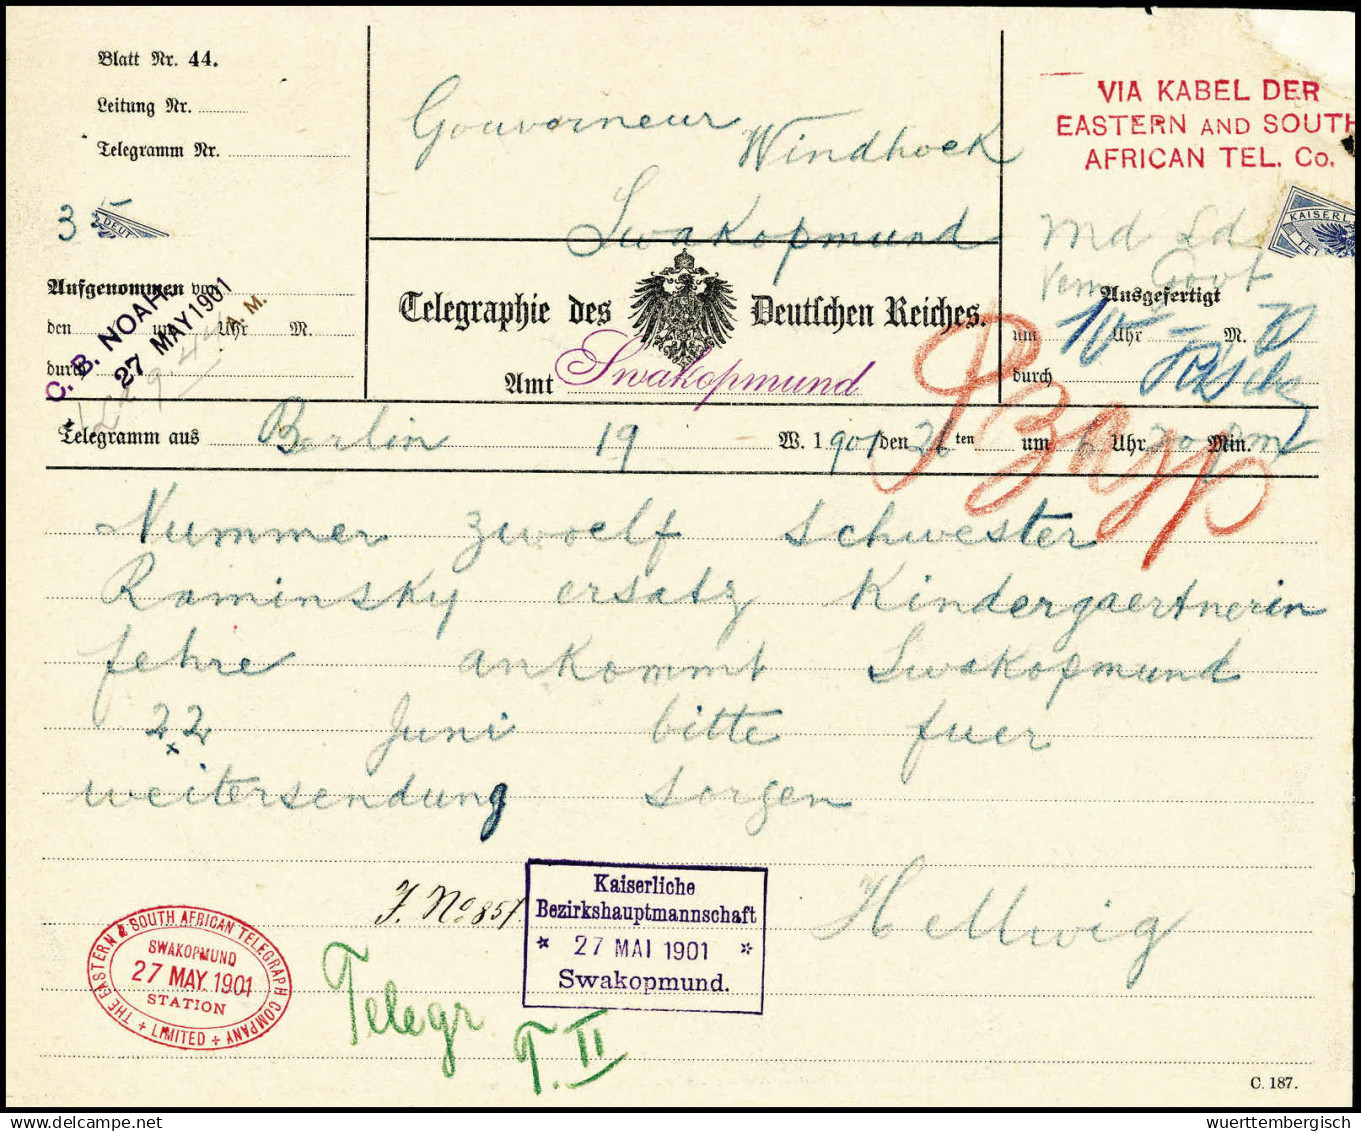 Blatt Nr. 44.
Leitung Nr.
Telegramm Nr.
35
Aufgenommen von
den um Uhr M.
durch
C. B. NOAH.
27 MAY 1901
9.44 A.M.
Gouverneur Windhoek
Swakopmund
Telegraphie des Deutschen Reiches.
Amt Swakopmund
VIA KABEL DER
EASTERN AND SOUTH
AFRICAN TEL. Co.
KAISERL
Ausgefertigt
um 10 Uhr M.
durch
Telegramm aus Berlin 19 W. 1901 den 26ten um 6 Uhr 20 pm Min.
Nummer zwoelf Schwester
Raminsky ersatz Kindergaertnerin
fehre ankommt Swakopmund
22 Juni bitte fuer
weitersendung sorgen
Hellwig
J. No 857.
Kaiserliche
Bezirkshauptmannschaft
* 27 MAI 1901 *
Swakopmund.
THE EASTERN & SOUTH AFRICAN TELEGRAPH COMPANY + LIMITED +
SWAKOPMUND
27 MAY. 1901
STATION
Telegr
T. II
C. 187.
wuerttembergisch